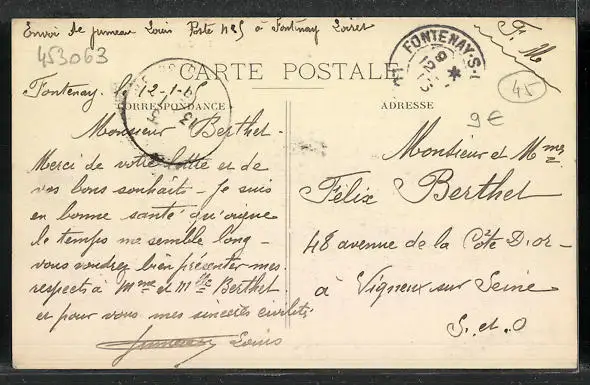 Envoi de Jumeau Louis Poste N°5 à Fontenay Loiret
F. M
453063
FONTENAY-S-L
9 *
12
CARTE POSTALE
45
9€
Fontenay.
12-1-
13
CORRESPONDANCE
ADRESSE
Monsieur Berthet -
Merci de votre lettre et de
vos bons souhaits - Je suis
en bonne santé qu'oique
le temps me semble long -
vous voudrez bien présenter mes
respects à Mme et Mlle Berthet
et pour vous mes sincères civilités
Jumeau Louis
Monsieur et Mme
Félix Berthet
48 avenue de la Côte D'or -
à Vigneux sur Seine
S. et O